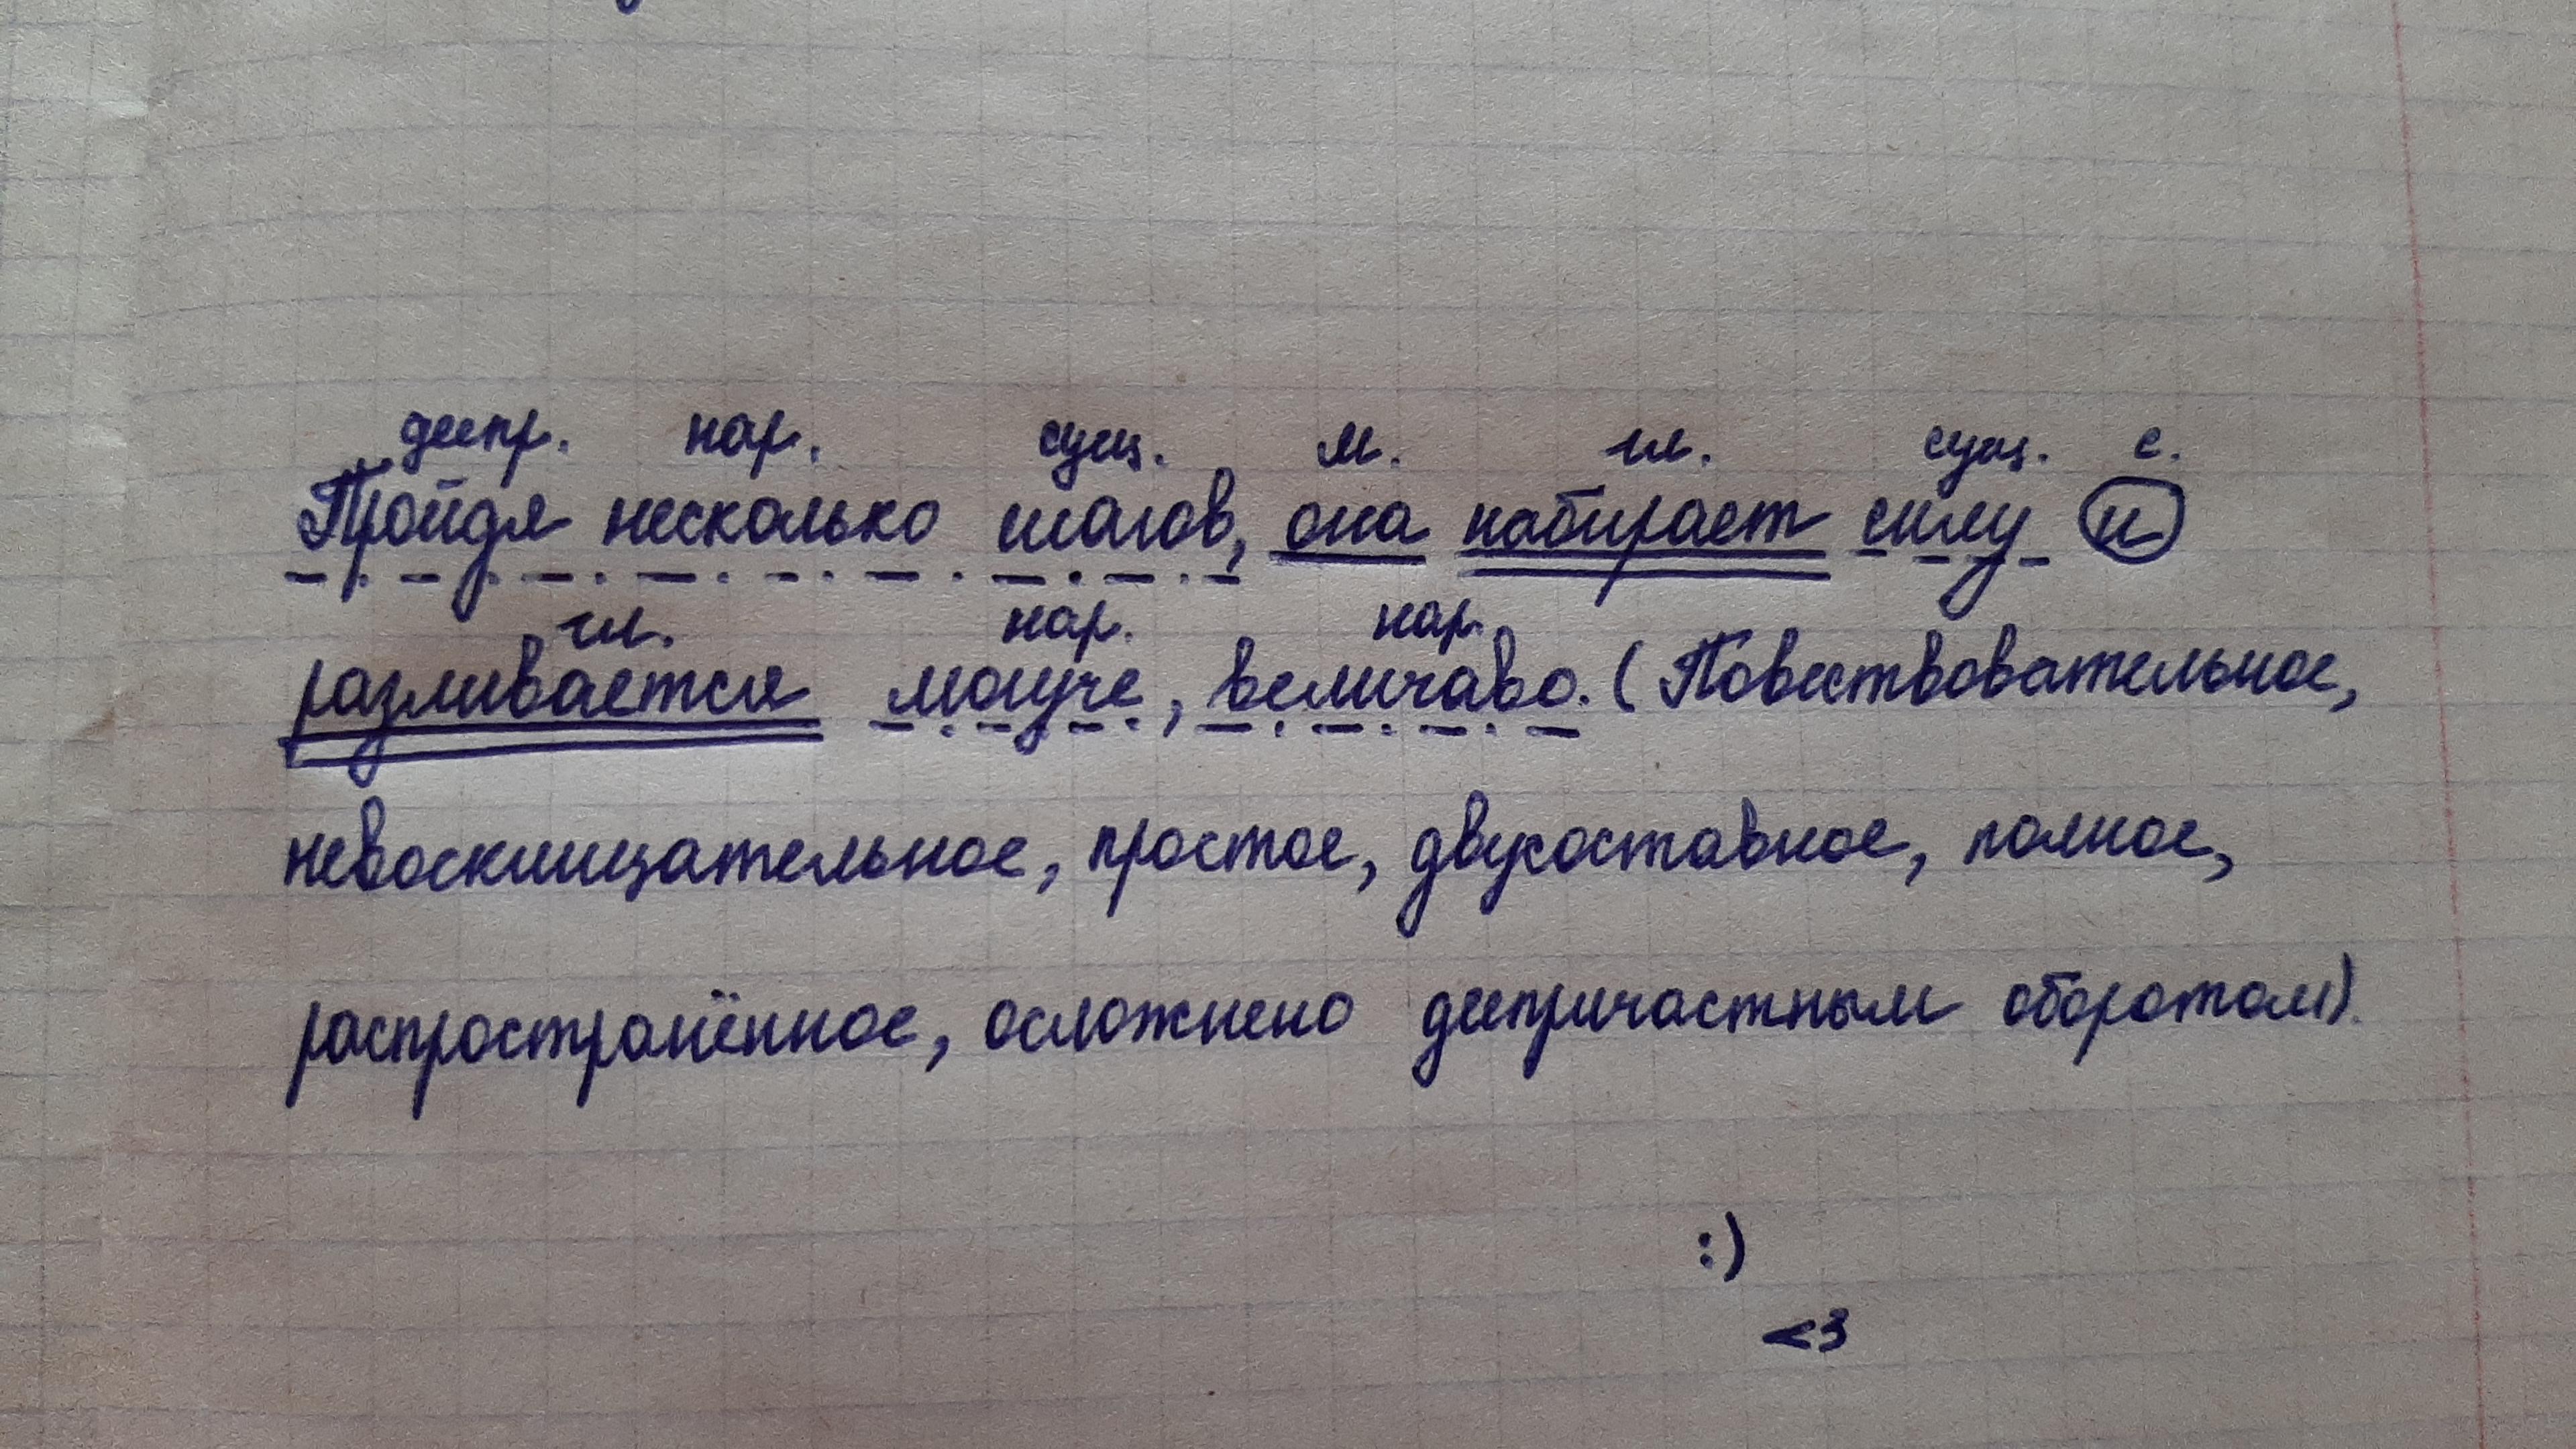 деепр. нар. сущ. м. гл. сущ. с.
Пройдя несколько шагов, она набирает силу и
гл. нар. нар.
разливается могуче, величаво. (Повествовательное,
невосклицательное, простое, двусоставное, полное,
распространённое, осложнено деепричастным оборотом).
:)
<3